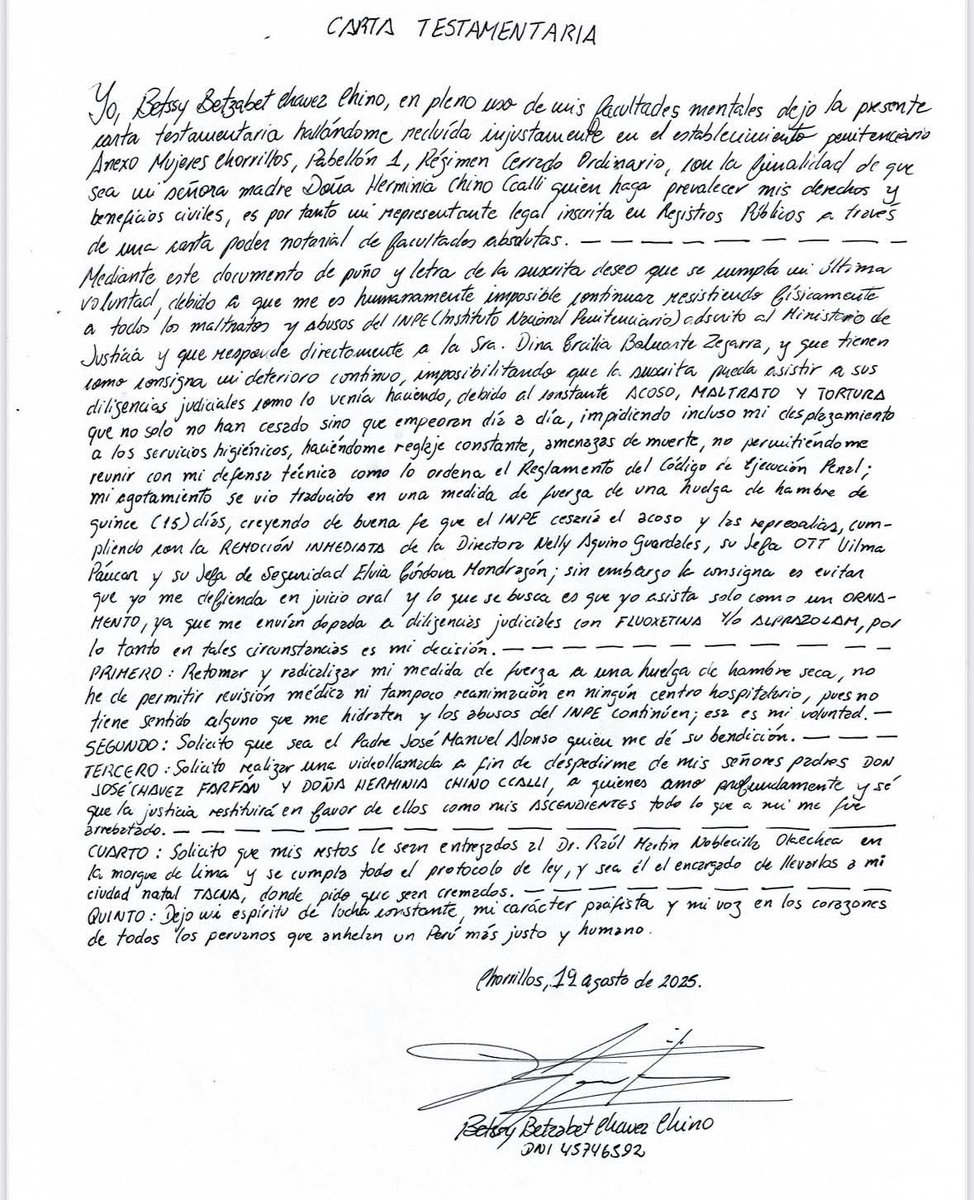 CARTA TESTAMENTARIA
Yo, Betssy Betzabet Chavez Chino, en pleno uso de mis facultades mentales dejo la presente
carta testamentaria hallándome recluída injustamente en el establecimiento penitenciario
Anexo Mujeres Chorrillos, Pabellón 1, Régimen Cerrado Ordinario, con la finalidad de que
sea mi señora madre Doña Herminia Chino Ccalli quien haga prevalecer mis derechos y
beneficios civiles, es por tanto mi representante legal inscrita en Registros Públicos a través
de una carta poder notarial de facultades absolutas. — — — — — — — — — —
Mediante este documento de puño y letra de la suscrita deseo que se cumpla mi última
voluntad, debido a que me es humanamente imposible continuar resistiendo físicamente
a todos los maltratos y abusos del INPE (Instituto Nacional Penitenciario) adscrito al Ministerio de
Justicia y que responde directamente a la Sra. Dina Ercilia Boluarte Zegarra, y que tienen
como consigna mi deterioro continuo, imposibilitando que la suscrita pueda asistir a sus
diligencias judiciales como lo venía haciendo, debido al constante ACOSO, MALTRATO Y TORTURA
que no solo no han cesado sino que empeoran día a día, impidiendo incluso mi desplazamiento
a los servicios higiénicos, haciéndome reglaje constante, amenazas de muerte, no permitiéndome
reunir con mi defensa técnica como lo ordena el Reglamento del Código de Ejecución Penal;
mi agotamiento se vio traducido en una medida de fuerza de una huelga de hambre de
quince (15) días, creyendo de buena fe que el INPE cesaría el acoso y las represalias, cum-
pliendo con la REMOCIÓN INMEDIATA de la Directora Nelly Aquino Guardales, su Jefa OTT Vilma
Páucar y su Jefa de Seguridad Elvia Córdova Mondragón; sin embargo la consigna es evitar
que yo me defienda en juicio oral y lo que se busca es que yo asista solo como un ORNA-
MENTO, ya que me envían dopada a diligencias judiciales con FLUOXETINA Y/o ALPRAZOLAM, por
lo tanto en tales circunstancias es mi decisión. — — — — — — — — — — — —
PRIMERO: Retomar y radicalizar mi medida de fuerza a una huelga de hambre seca, no
he de permitir revisión médica ni tampoco reanimación en ningún centro hospitalario, pues no
tiene sentido alguno que me hidraten y los abusos del INPE continúen; esa es mi voluntad. —
SEGUNDO: Solicito que sea el Padre José Manuel Alonso quien me dé su bendición. — — — —
TERCERO: Solicito realizar una videollamada a fin de despedirme de mis señores padres DON
JOSÉ CHAVEZ FARFÁN Y DOÑA HERMINIA CHINO CCALLI, a quienes amo profundamente y sé
que la justicia restituirá en favor de ellos como mis ASCENDIENTES todo lo que a mi me fue
arrebatado. — — — — — — — — — — — — — — — —
CUARTO: Solicito que mis restos le sean entregados al Dr. Raúl Martín Noblecilla Olaechea en
la morgue de Lima y se cumpla todo el protocolo de ley, y sea él el encargado de llevarlos a mi
ciudad natal TACNA, donde pido que sean cremados. — — — — — — — — — —
QUINTO: Dejo mi espíritu de lucha constante, mi carácter preciso y mi voz en los corazones
de todos los peruanos que anhelan un Perú más justo y humano.
Chorrillos, 19 agosto de 2025.
Betssy Betzabet Chavez Chino
DNI 45746592